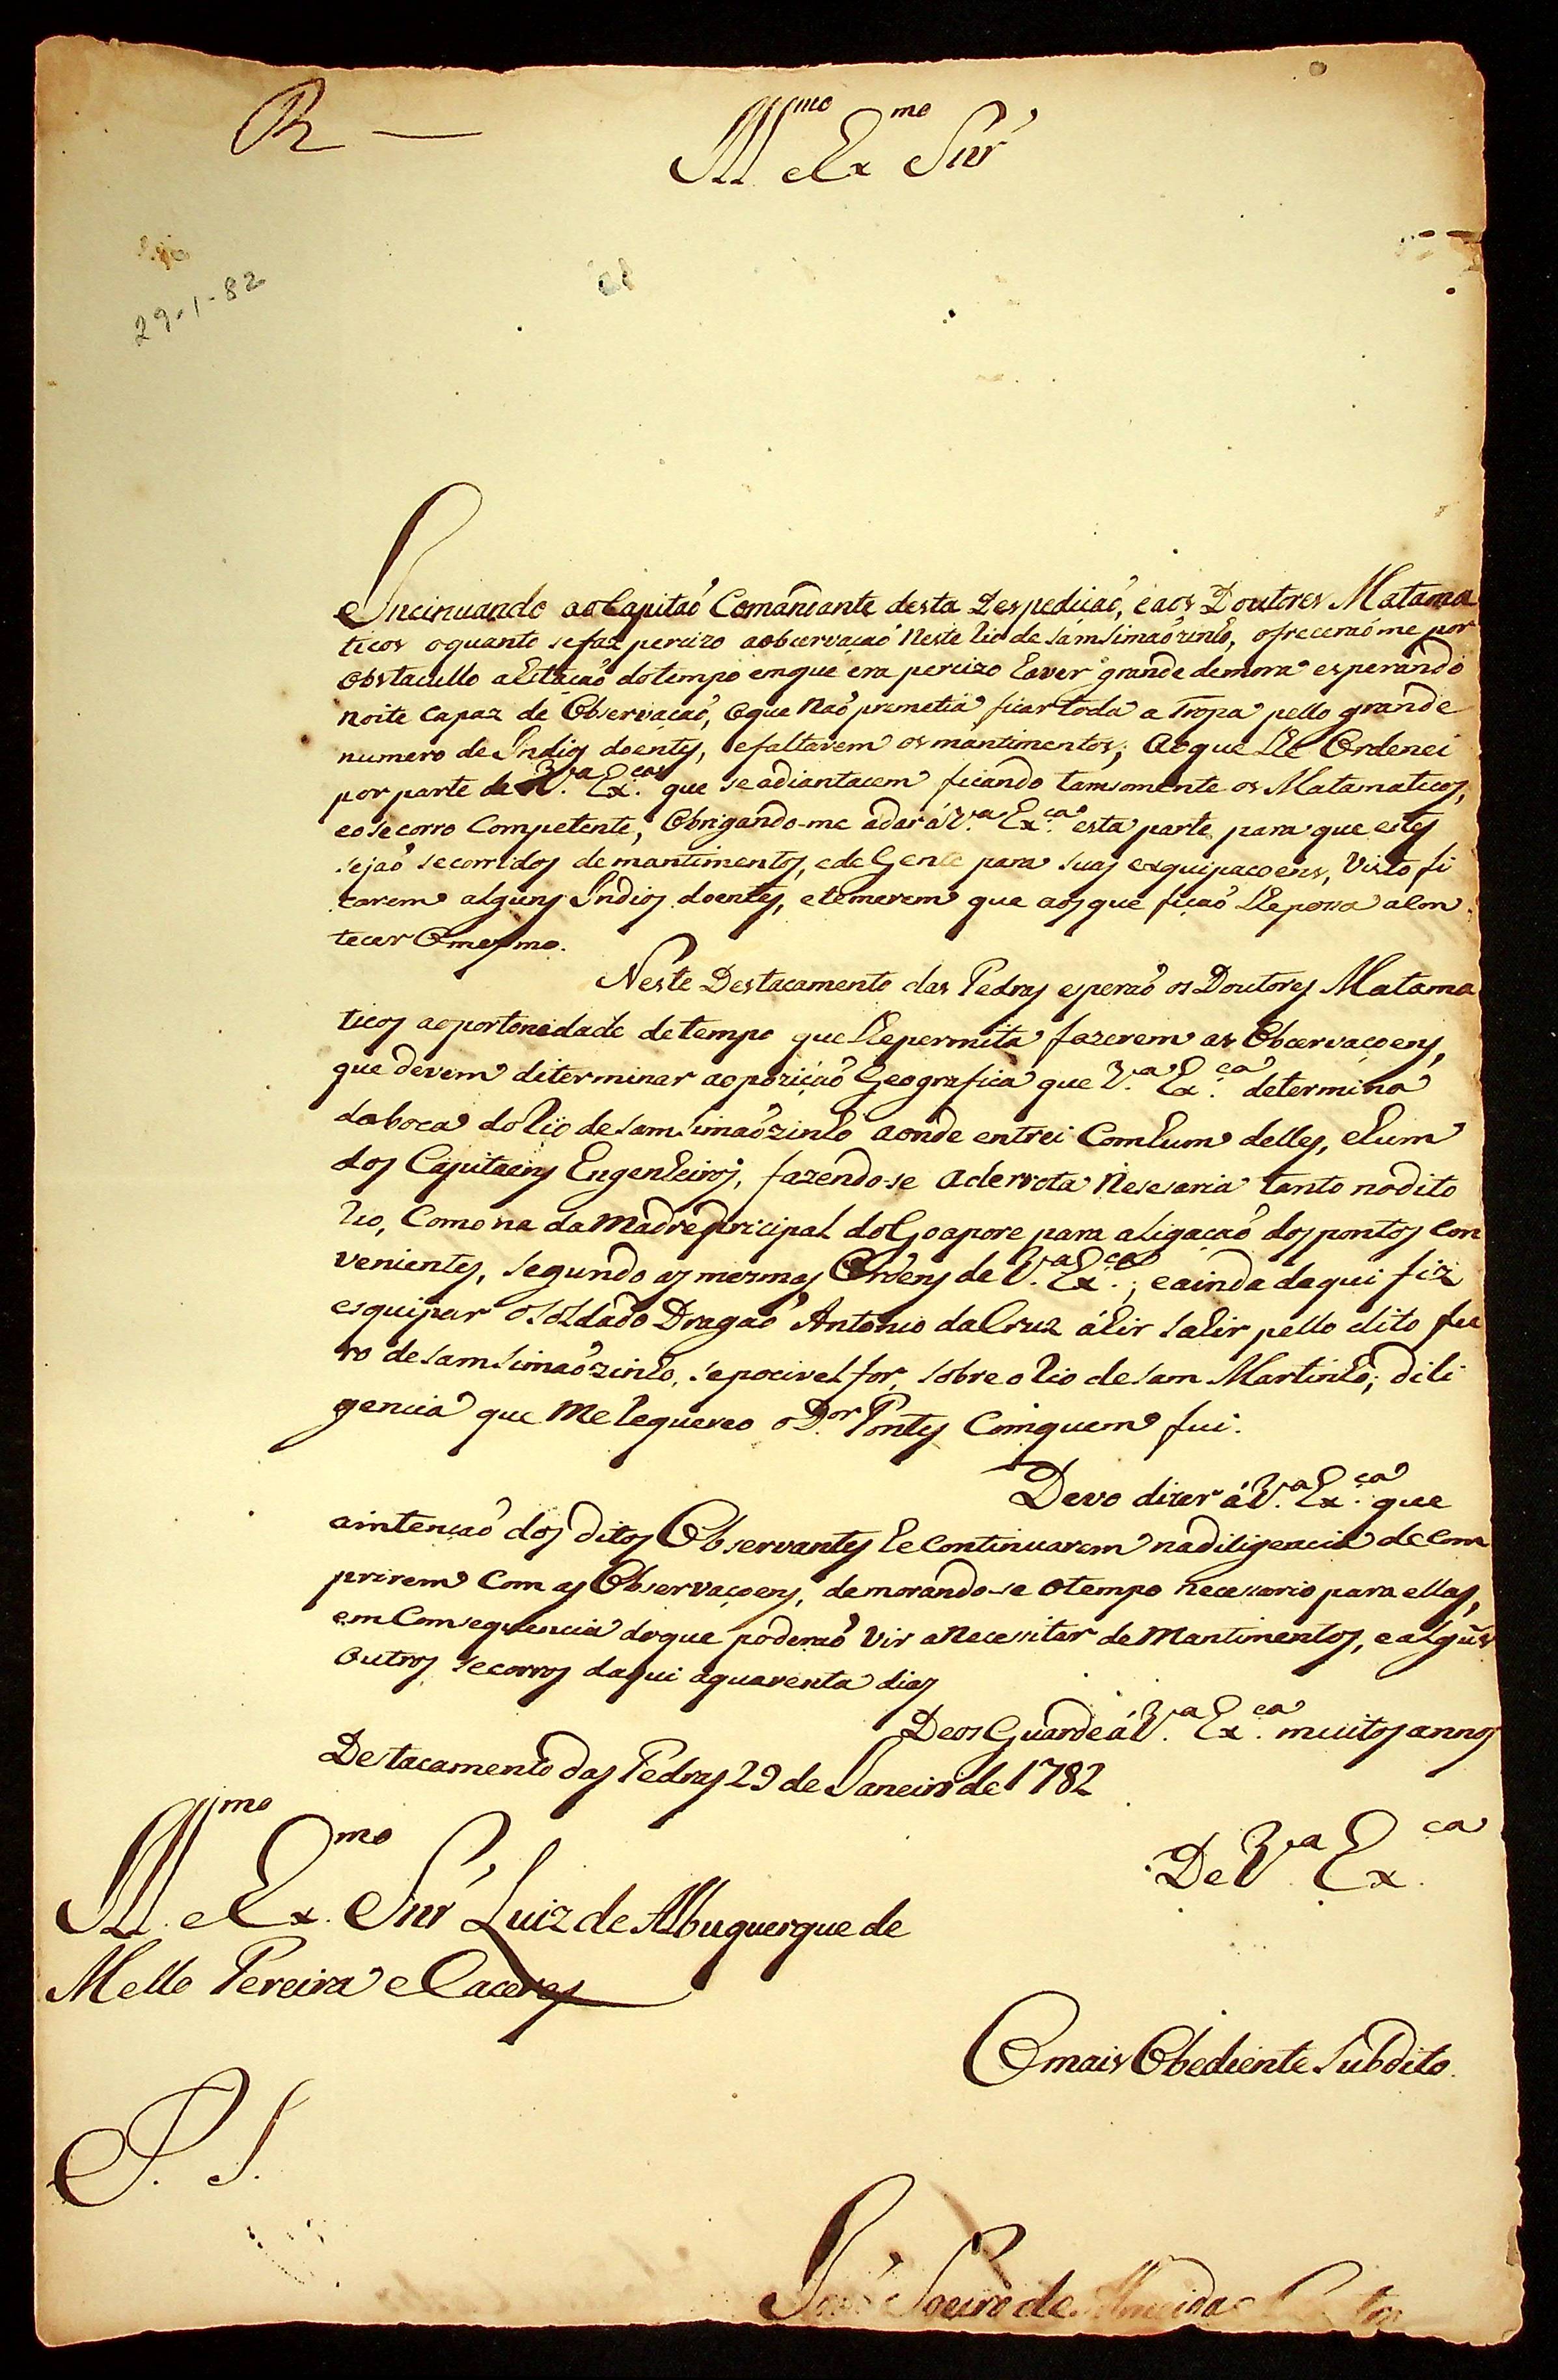 R
Ill.mo e Ex.mo Snr'
29-1-82
Incinuando ao Capitaõ Comandante desta Despediçaõ, eaos Doutores Matama
ticos oquanto sefaz percizo aobcervaçaõ Neste Rio de Sam Simaõzinho, ofreceraõme por
obstacullo aEstaçaõ dotempo emque era percizo haver grande demora esperando
noite capaz de Observaçaõ, Oque Naõ prometia ficar toda a Tropa pello grande
numero de Indios doentes, efaltarem os mantimentos; Aoque lhe Ordenei
por parte de V.a Ex.cas que seadiantacem ficando tamsomente os Matamaticos,
eosecorro Competente, Obrigando-me adar á V.a Ex.ca esta parte para que estes
sejaõ secorridos demantimentos, ede Gente para suas exquipacoens, Visto fi
carem alguns Indios doentes, etemerem que aos que ficaõ lhepossa acon
tecer Omesmo.
Neste Destacamento das Pedras esperaõ os Doutores Matama
ticos aoportonidade detempo que lhepermita fazerem as Obcervaçoens,
que devem diterminar aopoziçaõ Geografica que V.a Ex.ca determina
daboca do Rio de Sam Simaõzinho aonde entrei Comhum delles, ehum
dos Capitaens Engenheiros, fazendo-se aderrota Nesesaria tanto nodito
Rio, Comona da Madre principal do Goapore para aligaçaõ dos pontos con
venientes, segundo as mesmas Ordens de V.a Ex.ca; eainda daqui fiz
esquipar O Soldado Dragaõ Antonio da Cruz áhir sahir pello dito fu
ro de Sam Simaõzinho, sepocivel for, sobre o Rio de Sam Martinho; dili
gencia que me Requereo o D.or Pontes Comquem fui.
Devo dizer á V.a Ex.ca que
aintençaõ dos ditos Observantes he Continuarem nadiligencia de Com
prirem Com as Observaçoens, demorando-se otempo necesario para ellas,
em Consequencia doque poderaõ Vir a Necessitar de Mantimentos, ealgũs
outros secorros daqui aquarenta dias
Deos Guarde á V.a Ex.ca muitos annos
Destacamento das Pedras 29 de Janeiro de 1782
De V.a Ex.ca
Ill.mo e Ex.mo Snr' Luiz de Albuquerque de
Mello Pereira e Caceres
Omais Obediente Subdito.
P. S.
Joeiro de Almida